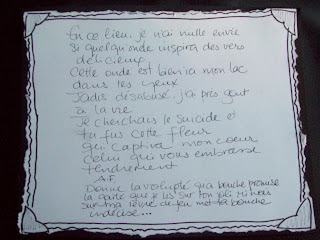 En ce lieu, je n'ai nulle envie
Si quelqu'onde inspira des vers
délicieux
Cette onde est bien ra mon lac
dans tes yeux
Jadis désabusé, j'ai pris gout
à la vie
Je cherchais le suicide et
tu fus cette fleur
qui captiva mon coeur
Celui qui vous embrasse
tendrement
A.F
Donne la volupté qu'a bouche promise
la gaité que je lis sur ton joli minois
sur ma lèvre de feu met ta bouche
indécise...